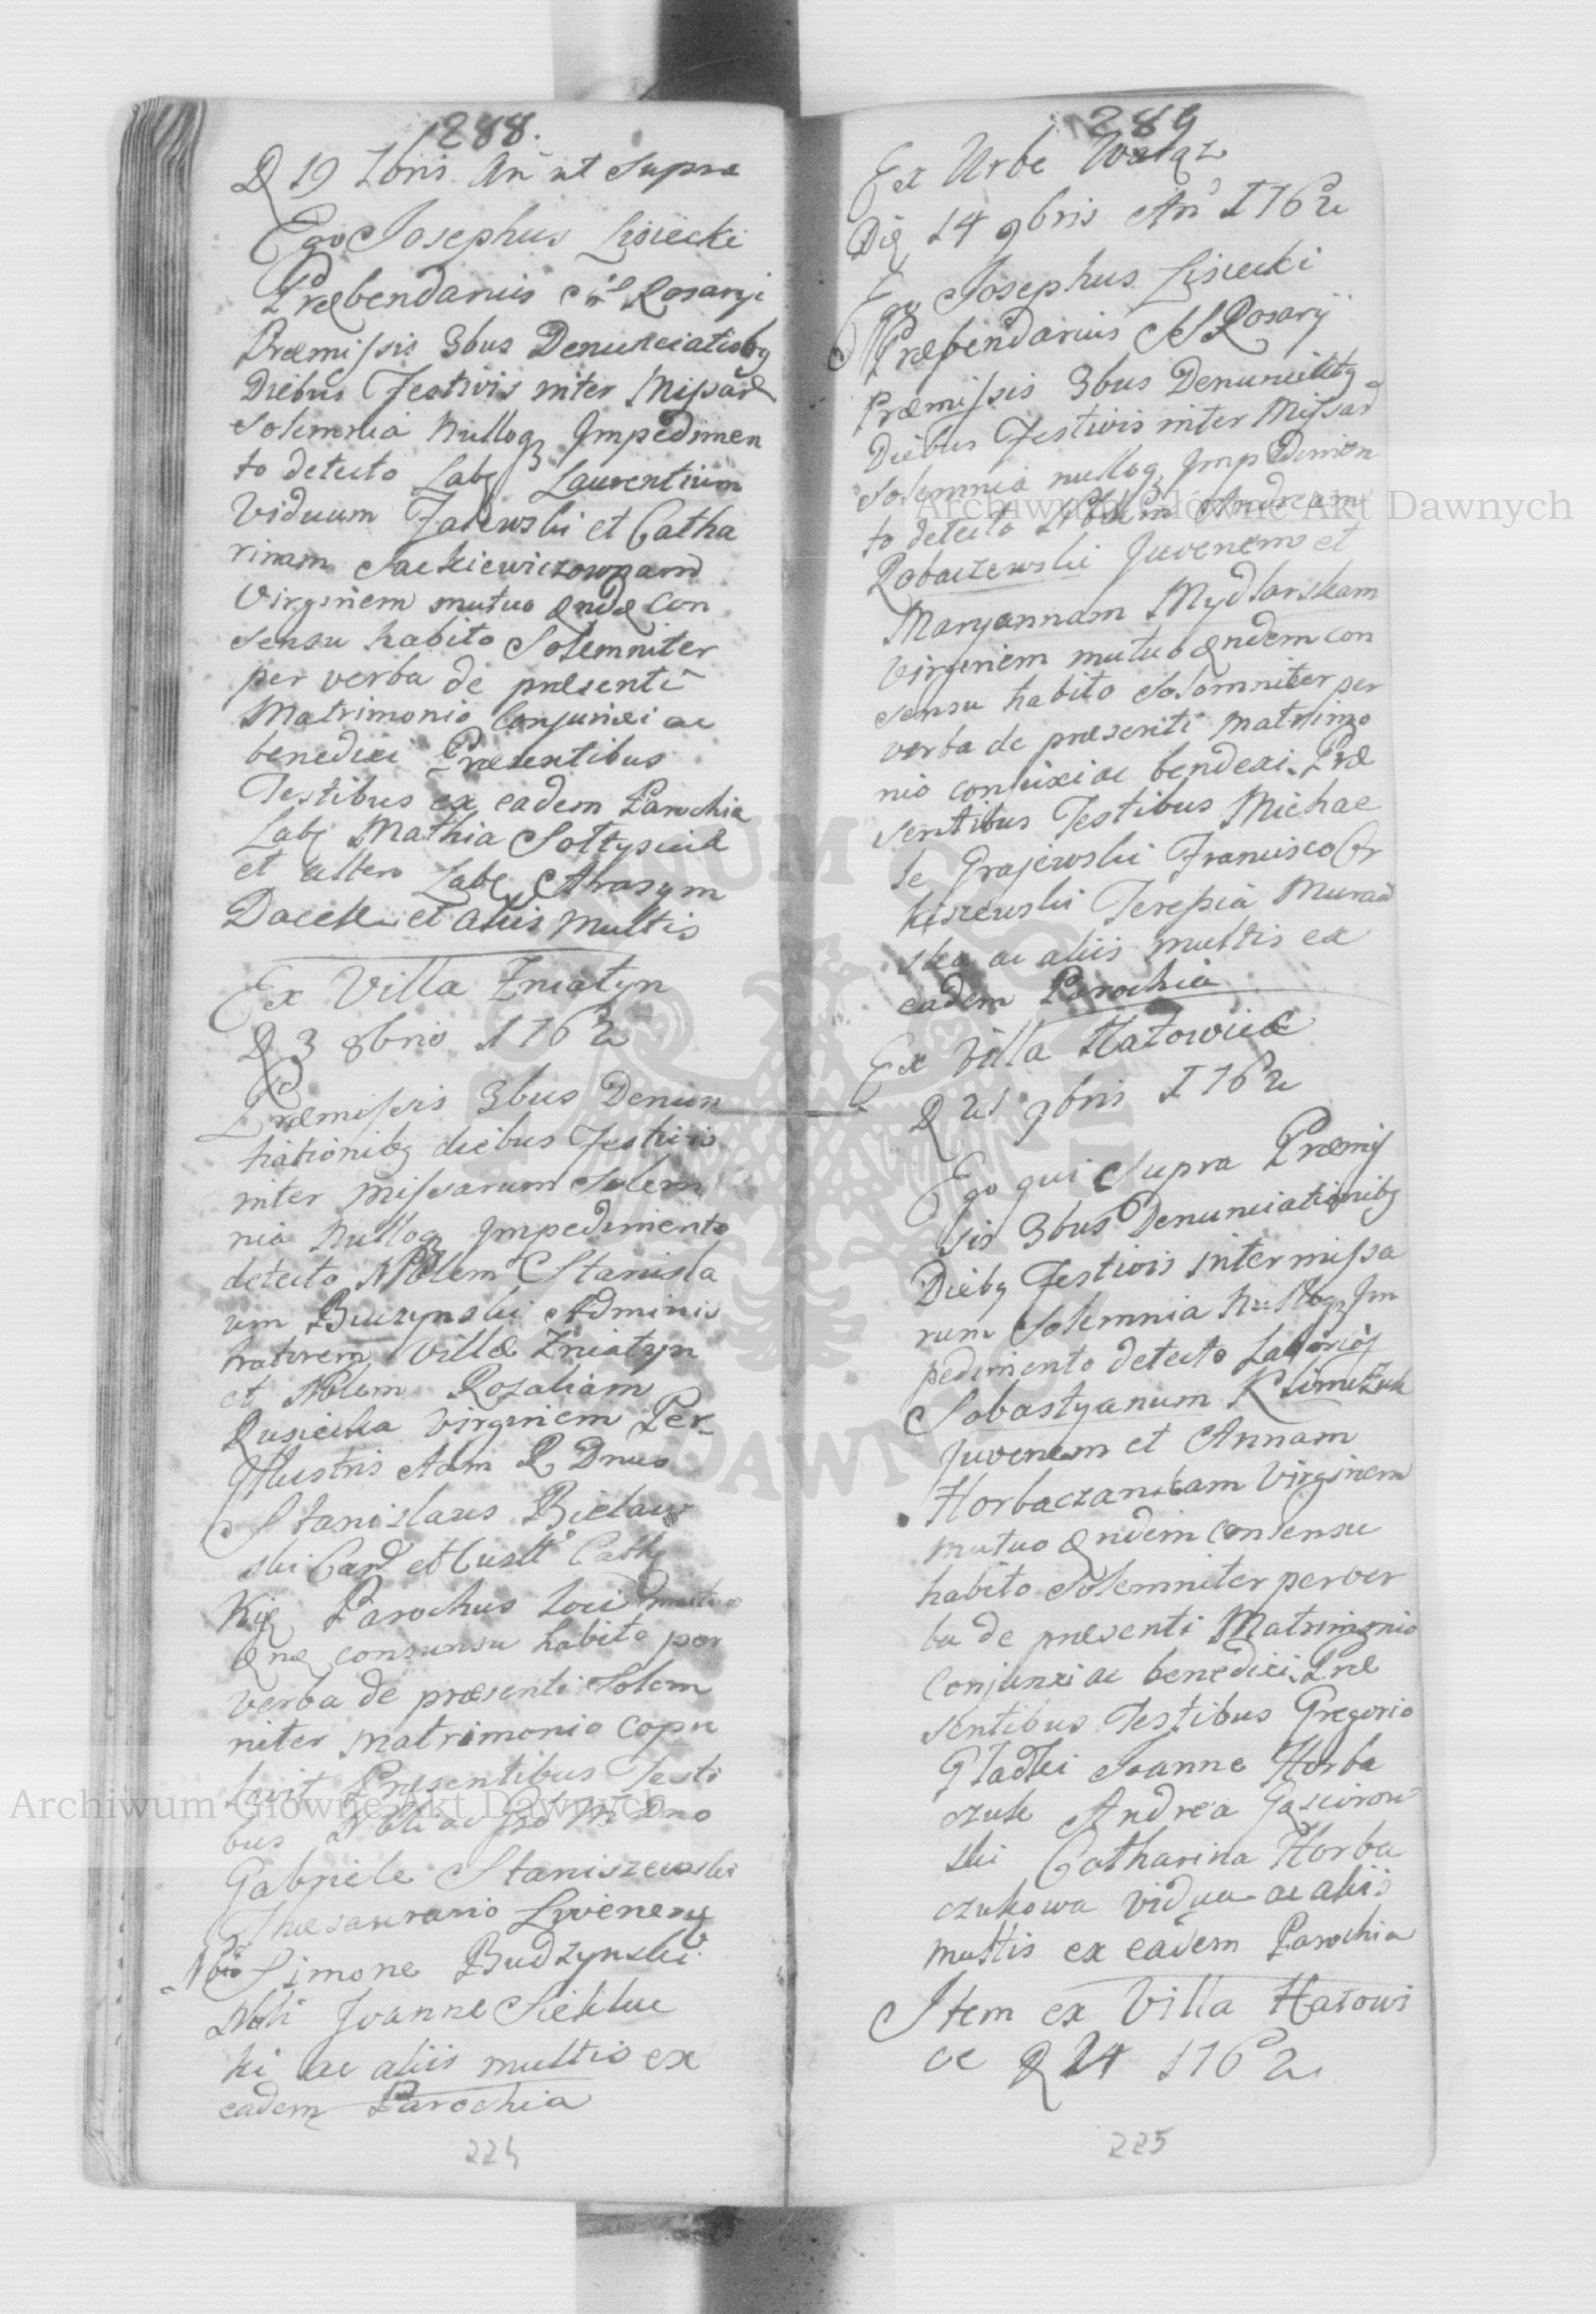 288.
D 19 7bris An ut Supra
Ego Josephus Lisiecki
Præbendarius Rosarÿ
Præmissis 3bus Denunciatiobq
Diebus Festivis inter Missar
Solemnia Nulloqz Impedimen
to detecto Labq Laurentium
Viduum Zalewski et Catha
rinam
Virginem mutuo con
sensu habito Solemniter
per verba de præsenti
Matrimonio Conjunxi ac
benedixi Præsentibus
Testibus ex eadem Parochia
Labq Mathia Sołtysiek
et altero Labq
Dacek et aliis Multis
Ex Villa Zniatyn
D 3 8bris 1762
Præmissis 3bus Denun
tiationibq diebus Festivis
inter Missarum Solem
nia Nulloqz Impedimento
detecto Nblem Stanisla
um Buczynski Adminis
tratorem Villæ Zniatyn
et Nblem Rozaliam
Rusiecka Virginem Per
Illustris Adm R Dnus
Stanislaus Bielaw
ski Can et Cust Cath
Kij Parochus loci mutuo
consunsu habito per
verba de præsenti Solem
niter matrimonio copu
lavit Præsentibus Testi
bus Dno
Gabriele Staniszewski
Thæsaurario
Nbli Simone Budzynski
Nbli Joanne
ki ac aliis multis ex
eadem Parochia
224
289
Ex Urbe Waręz
Die 14 9bris An 1762
Ego Josephus Lisiecki
Præbendarius SS Rosarÿ
Præmissis 3bus
Diebus Festivis inter Missar
Solemnia nulloqz Impedimen
to detecto Andream
Robaczewski Juvenem et
Maryannam Mydlarskam
Virginem mutuo con
sensu habito Solomniter per
verba de præsenti Matrimo
nio conjuixi ac bendexi Præ
sentibus Testibus Michae
le Grajewski Francisco Or
kiszewski Teressia Muraw
ska ac aliis multis ex
eadem Parochia
Ex Villa Hatowice
D 21 9bris 1762
Ego qui Supra Præmis
sis 3bus Denunciationibq
Diebq Festivis inter missa
rum Solemnia Nulloqz Im
pedimento detecto
Sobastyanum Klimczuk
Juvenem et Annam
Horbaczankam Virginem
mutuo consensu
habito Solemniter per ver
ba de præsenti Matrimonio
Conjunxi ac benedixi Præ
sentibus Testibus Gregorio
Gładki Joanne Horba
czuk Andrea Gąsiorow
ski Catharina Horba
czukowa vidua ac aliis
multis ex eadem Parochia
Item ex Villa Hatowi
ce D 24 1762
225
Archiwum Główne Akt Dawnych
Archiwum Główne Akt Dawnych